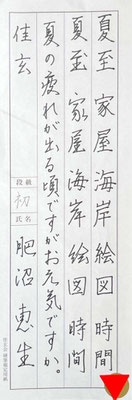 夏至 家屋 海岸 絵図 時間
夏至 家屋 海岸 絵図 時間
夏の疲れが出る頃ですがお元気ですか。
佳玄
段級 初
氏名 肥沼 恵生